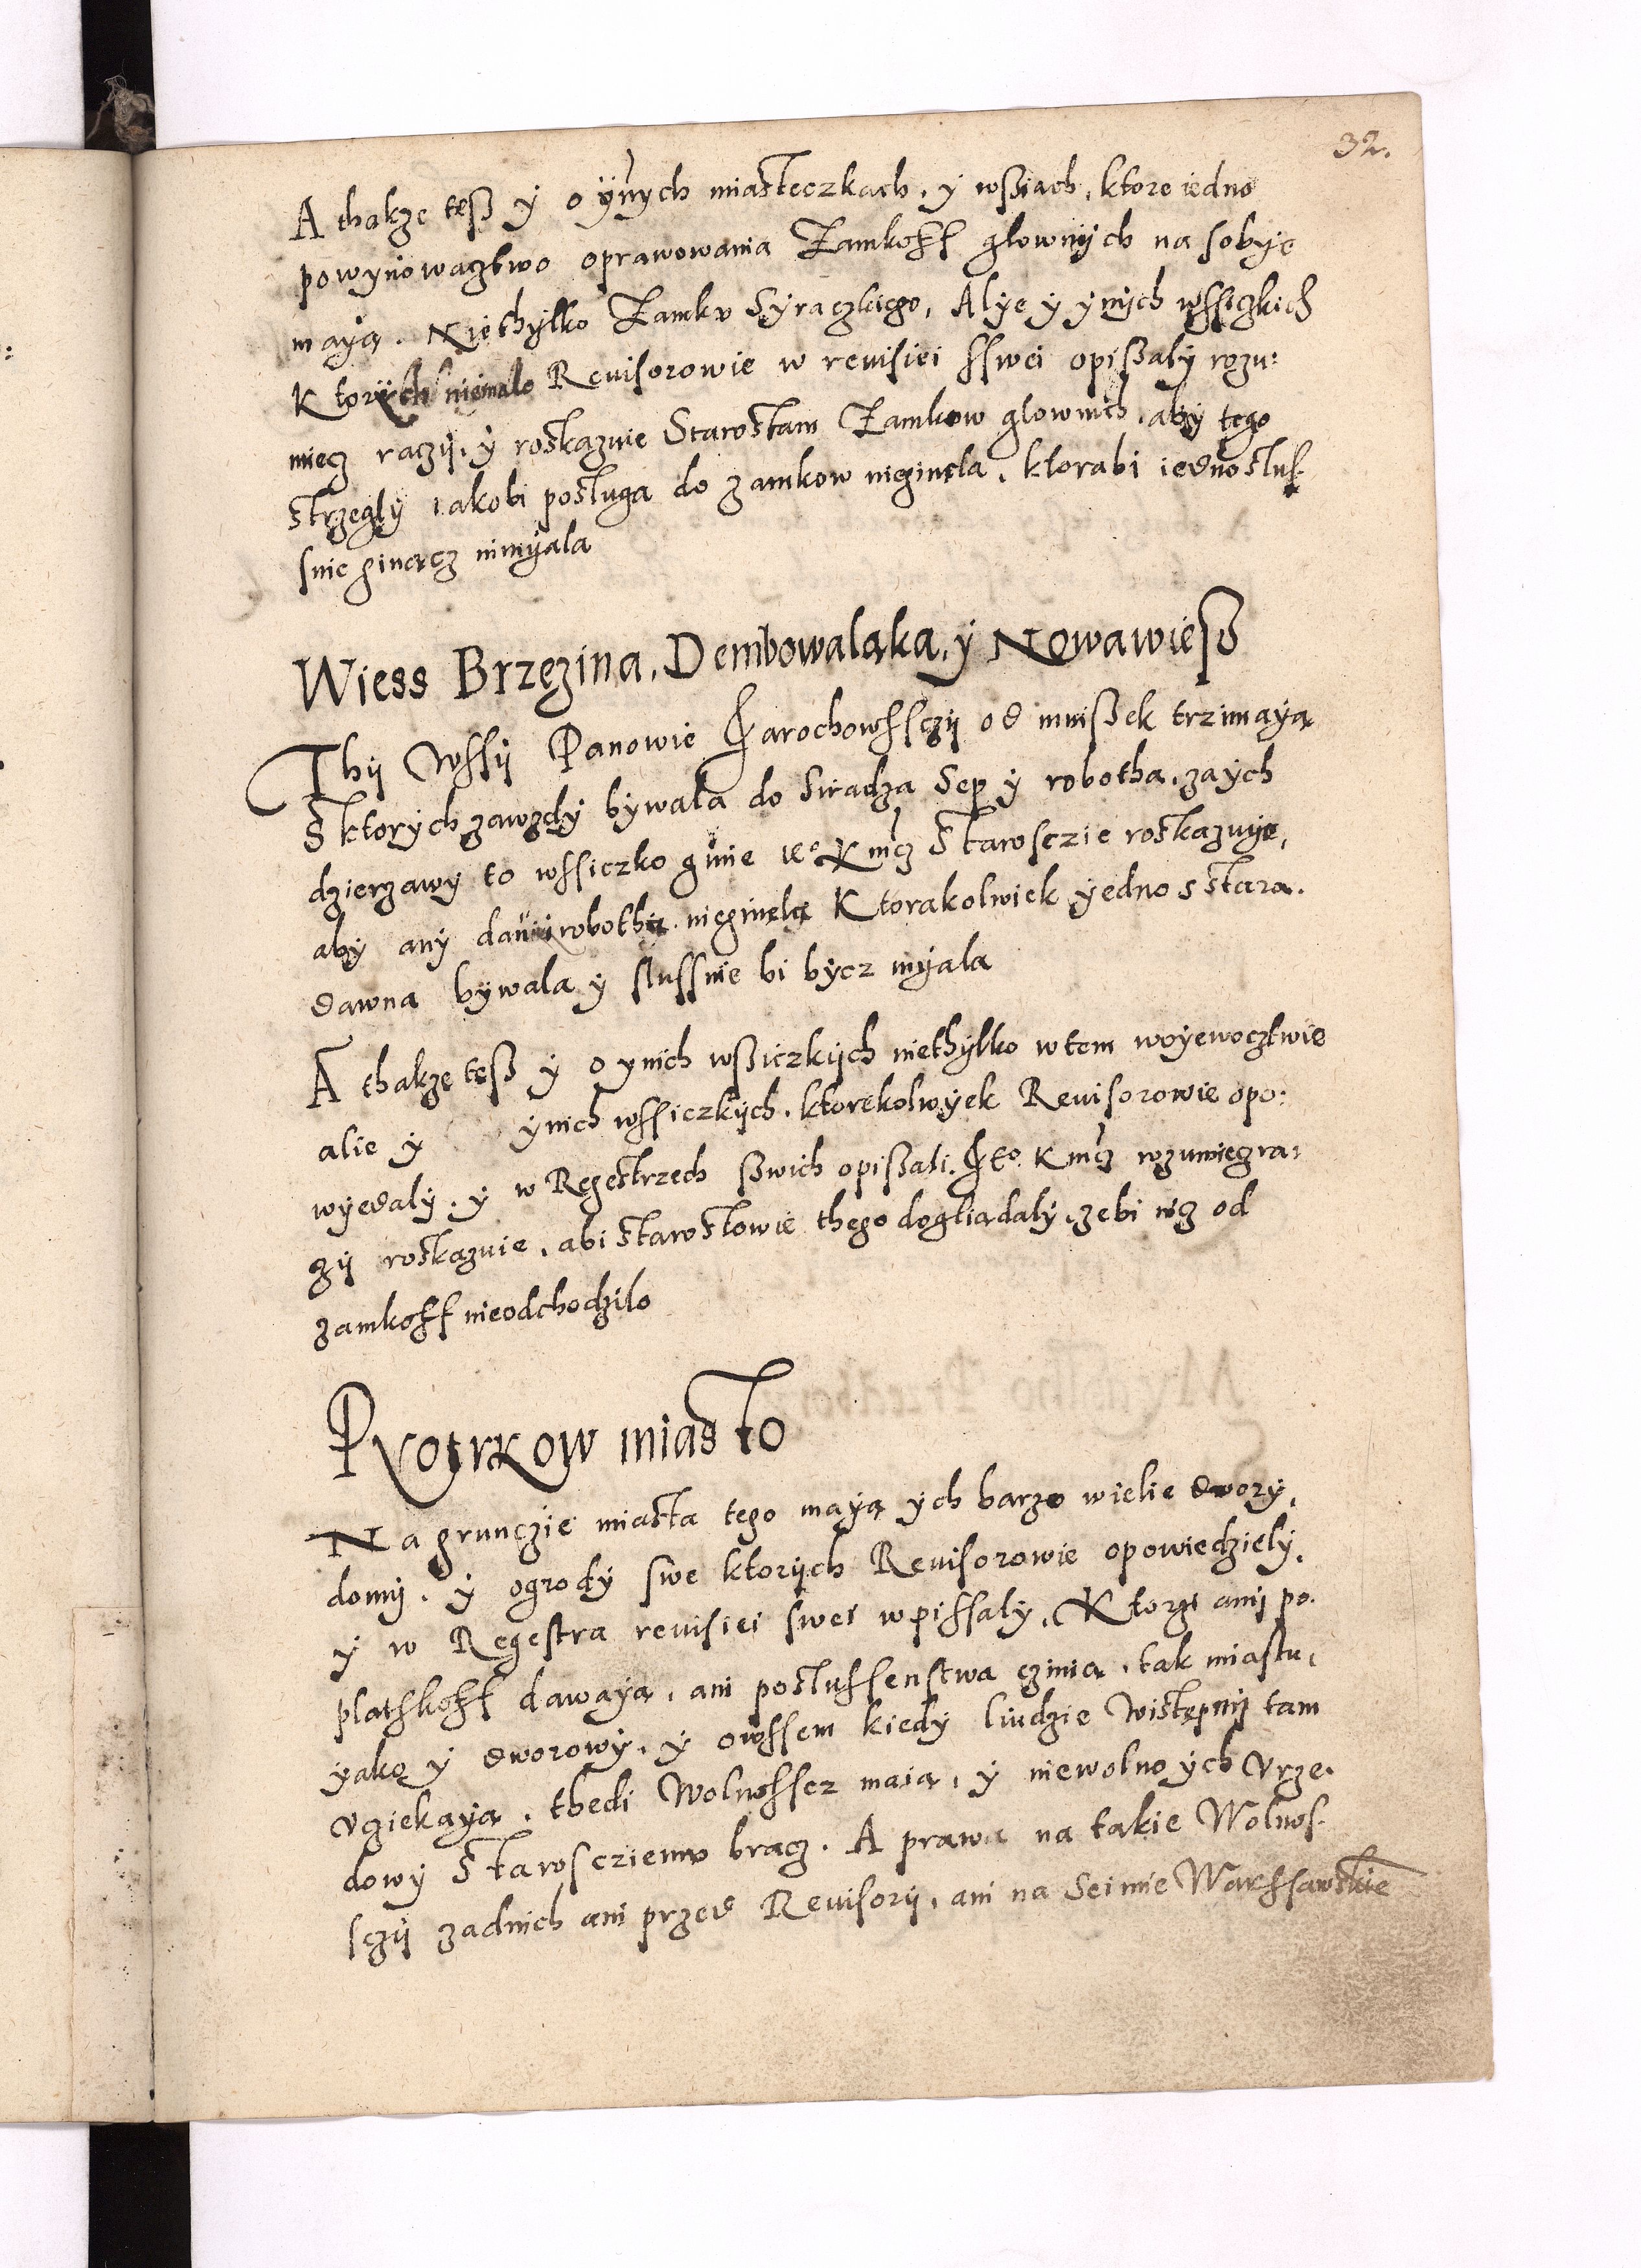 32.
A thakze teß y o ÿnych miasteczkach, y wßiach, ktore iedno
powynowacztwo oprawowania Zamkoff glownych na sobÿe
maÿą. Niethÿlko Zamku Syraczkiego, Alÿe y ynÿch wssiczkich
Ktorÿch niemalo Reuisorowie w reuisiei sswei opißaly rozu:
miecz raczÿ, ÿ roskazuie Starostam Zamkow glownich, abÿ tego
strzeglÿ iakobi posluga do zamkow nieginęla, ktorabi iedno slus
snie ginącz nimÿala
Wiess Brzęzina, Dembowaląka, ÿ Nowawieß
Thÿ Wssÿ Panowie Zarochowssczÿ od mnißek trzimaÿą
S ktorÿch zawzdÿ bÿwala do Siradza Sep ÿ robotha, za ÿch
dzierzawÿ to wssiczko ginie Kmcz Starosczie roskazuÿe,
abÿ anÿ robothÿ nieginęlÿ Ktorakolwiek ÿedno s stara
dawna bÿwala ÿ slussnie bi bÿcz mÿala
A thakze teß ÿ o ÿnich wßiczkÿch niethÿlko w tem woÿewocztwie
alie ÿ ÿnich wssiczkÿch, ktorekolwÿek Reuisorowie opo:
wÿedalÿ, ÿ w Regestrzech ßwich opißali. Kmcz rozumiecz ra:
czÿ roskazuie, abi starostowie thego dogliądalÿ, zebi nicz od
zamkoff nieodchodzilo
Pyotrkow miasto
Na grunczie miasta tego maÿą ÿch barzo wielie dworÿ,
domÿ, ÿ ogrodÿ swe ktorÿch Reuisorowie opowiedzielÿ,
ÿ w Regestra reuisiei swei wpissalÿ, Ktorzi anÿ po
plathkoff dawaÿą, ani poslussenstwa czinią, tak miastu,
ÿako ÿ dworowÿ, ÿ owssem kiedÿ liudzie Wistępnÿ tam
vciekaÿą, thedi Wolnosscz maią, ÿ niewolno ÿch vrze
dowÿ Starosciemu bracz. A prawa na takie Wolnos
sczÿ zadnich ani przed Reuisorÿ, ani na Seimie Warssawskie